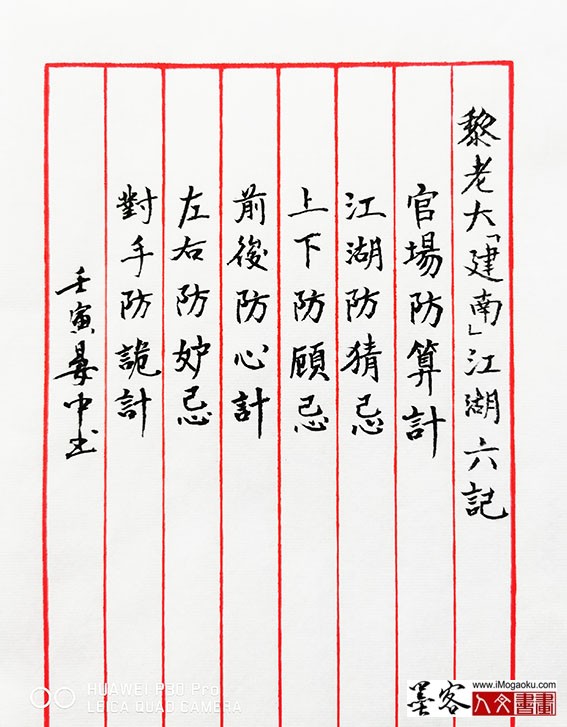 黎老大「建南」江湖六記
官場防算計
江湖防猜忌
上下防顧忌
前後防心計
左右防妒忌
對手防詭計
壬寅晏中书
HUAWEI P30 Pro
LEICA QUAD CAMERA
墨客
www.iMogaoku.com
人文書畫